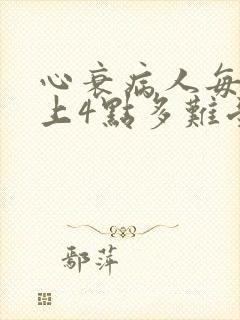 心衰病人每
上4點多難
鄢萍